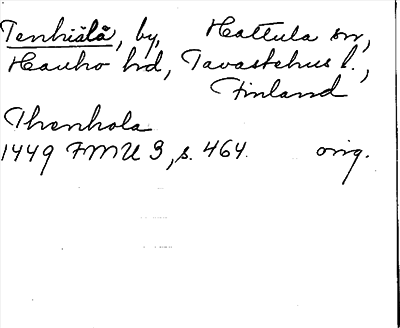 Tenhiälä, by, Hattula sn,
Hauho hd, Tavastehus l.,
Finland
Thenhola
1449 FMU 3, s. 464. orig.